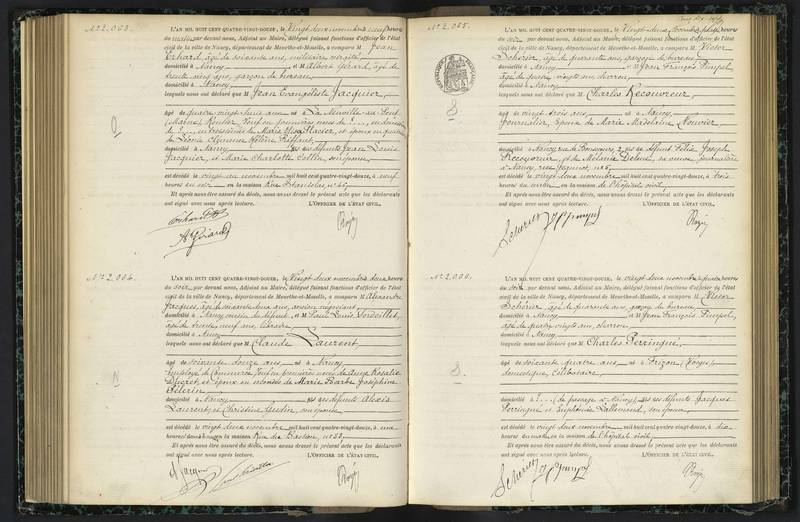 N° 2,063.
L'AN MIL HUIT CENT QUATRE-VINGT-DOUZE, le Vingt deux novembre neuf heures
du matin par devant nous, Adjoint au Maire, délégué faisant fonctions d'officier de l'état
civil de la ville de Nancy, département de Meurthe-et-Moselle, a comparu M Jean
Erhard, âgé de soixante ans, militaire retraité
domicilié à Nancy et M Albert Gérard, âgé de
trente cinq ans, garçon de bureau,
domicilié à Nancy
lesquels nous ont déclaré que M Jean Evangéliste Jacquier,
âgé de quatre vingt huit ans né à La Neuville au Pont
(Marne) Rentier, Veuf en premières noces de ?..., en deuxièmes
de ?..., en troisièmes de Marie Elisa Macier, et époux en quatrièmes
de Léonie Clémence Hélène Riffaut
domicilié à Nancy fils des défunts Jean Louis
Jacquier, et Marie Charlotte Collin, son épouse
est décédé le vingt un novembre mil huit cent quatre-vingt-douze, à neuf
heures du soir en la maison Rue Stanislas, n° 45,
Et après nous être assuré du décès, nous avons dressé le présent acte que les déclarants
ont signé avec nous après lecture. L'OFFICIER DE L'ÉTAT CIVIL,
N° 2,064.
L'AN MIL HUIT CENT QUATRE-VINGT-DOUZE, le Vingt deux novembre deux heures
du soir, par devant nous, Adjoint au Maire, délégué faisant fonctions d'officier de l'état
civil de la ville de Nancy, département de Meurthe-et-Moselle, a comparu M Alexandre
Jacques, âgé de soixante deux ans, ancien négociant
domicilié à Nancy cousin du défunt, et M Paul Louis
âgé de trente neuf ans, libraire
domicilié à Nancy
lesquels nous ont déclaré que M Claude Laurent
âgé de soixante douze ans né à Nancy
Employé de Commerce, Veuf en premières noces de Anne Rosalie
et époux en secondes de Marie Barbe Joséphine
Pélerin
domicilié à Nancy fils des défunts Alexis
Laurent, et Christine Gudin, son épouse
est décédé le vingt deux novembre mil huit cent quatre-vingt-douze, à une
heure du en la maison Rue du Bastion, n°
Et après nous être assuré du décès, nous avons dressé le présent acte que les déclarants
ont signé avec nous après lecture. L'OFFICIER DE L'ÉTAT CIVIL,
N° 2,065.
L'AN MIL HUIT CENT QUATRE-VINGT-DOUZE, le Vingt deux novembre heures
du soir, par devant nous, Adjoint au Maire, délégué faisant fonctions d'officier de l'état
civil de la ville de Nancy, département de Meurthe-et-Moselle, a comparu M Victor
Schérier, âgé de quarante ans, garçon de bureau
domicilié à Nancy et M Jean François Pimpel,
âgé de quatre vingts ans charron
domicilié à Nancy
lesquels nous ont déclaré que M Charles Recouvreur,
âgé de vingt trois ans né à Nancy
journalier, époux de Marie Madeleine Bouvier
domicilié à Nancy, rue de , 2, fils de défunt Félix Joseph
Recouvreur, et de Mélanie , sa veuve, journalière
à Nancy, rue Jacquot, n° 5
est décédé le vingt deux novembre mil huit cent quatre-vingt-douze, à trois
heures du matin en la maison de l'hôpital civil,
Et après nous être assuré du décès, nous avons dressé le présent acte que les déclarants
ont signé avec nous après lecture. L'OFFICIER DE L'ÉTAT CIVIL,
L'AN MIL HUIT CENT QUATRE-VINGT-DOUZE, le vingt deux novembre quatre heures
du soir par devant nous, Adjoint au Maire, délégué faisant fonctions d'officier de l'état
civil de la ville de Nancy, département de Meurthe-et-Moselle, a comparu M Victor
Schérier, âgé de quarante ans, garçon de bureau
domicilié à Nancy et M Jean François Pimpel,
âgé de quatre vingts ans, charron
domicilié à Nancy
lesquels nous ont déclaré que M Charles Perringue,
âgé de soixante quatre ans né à Frizon (Vosges)
domestique, célibataire
domicilié à ?... (de passage à Nancy), fils des défunts Jacques
Perringue et Lallemand, son épouse,
est décédé le vingt deux novembre mil huit cent quatre-vingt-douze, à dix
heures du matin en la maison de l'hôpital civil,
Et après nous être assuré du décès, nous avons dressé le présent acte que les déclarants
ont signé avec nous après lecture. L'OFFICIER DE L'ÉTAT CIVIL,